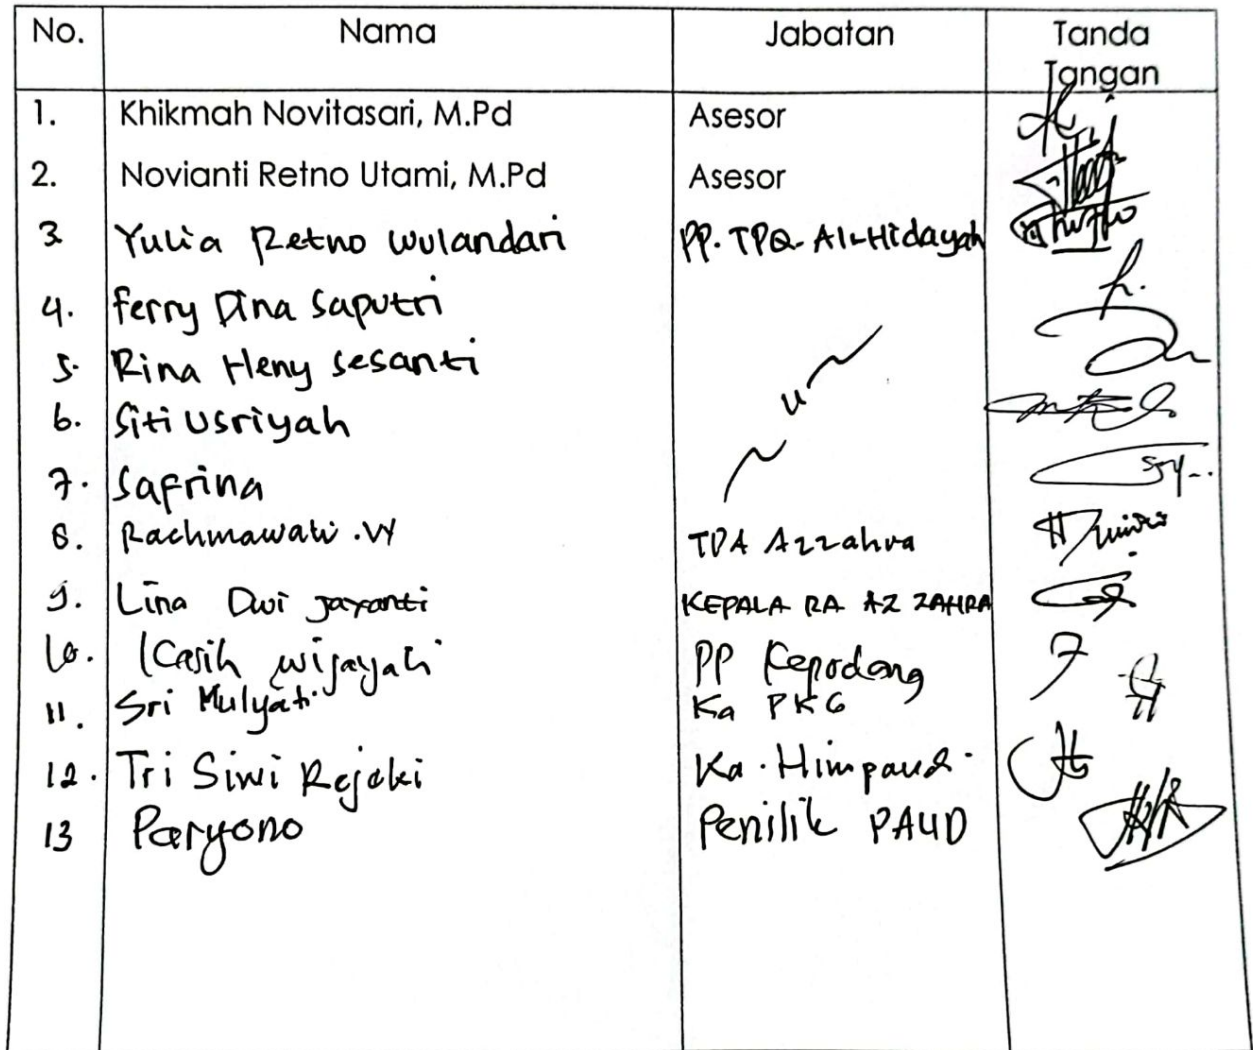 No. Nama Jabatan Tanda Tangan
1. Khikmah Novitasari, M.Pd Asesor
2. Novianti Retno Utami, M.Pd Asesor
3 Yulia Retno Wulandari PP. TPQ Al-Hidayah
4. Ferry Dina Saputri
5. Rina Heny Sesanti
6. Siti Usriyah
7. Safrina
8. Rachmawati .VY TPA Azzahra
9. Lina Dwi Jayanti KEPALA RA AZ ZAHRA
10. Kasih Wijayati PP Kepodang
11. Sri Mulyati Ka PKG
12. Tri Siwi Rejeki Ka. Himpaudi
13 Paryono Penilik PAUD